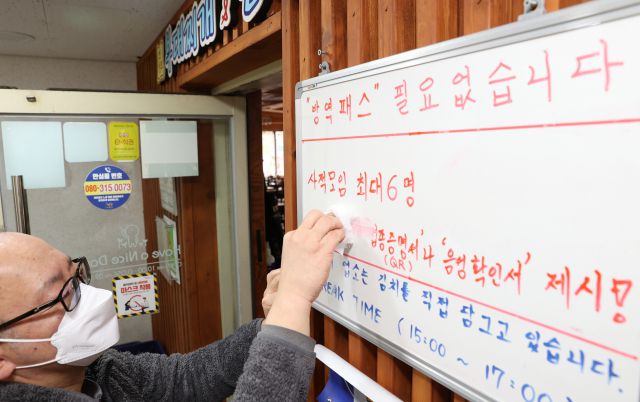 "방역패스" 필요없습니다
사적모임 최대 6명
접종증명서'나 '음성확인서' 제시!
(QR)
업소는 김치를 직접 담그고 있습니다.
BREAK TIME (15:00 ~ 17:00
안심콜 번호
080-315 0073
Have a Nice Da
마스크 착용